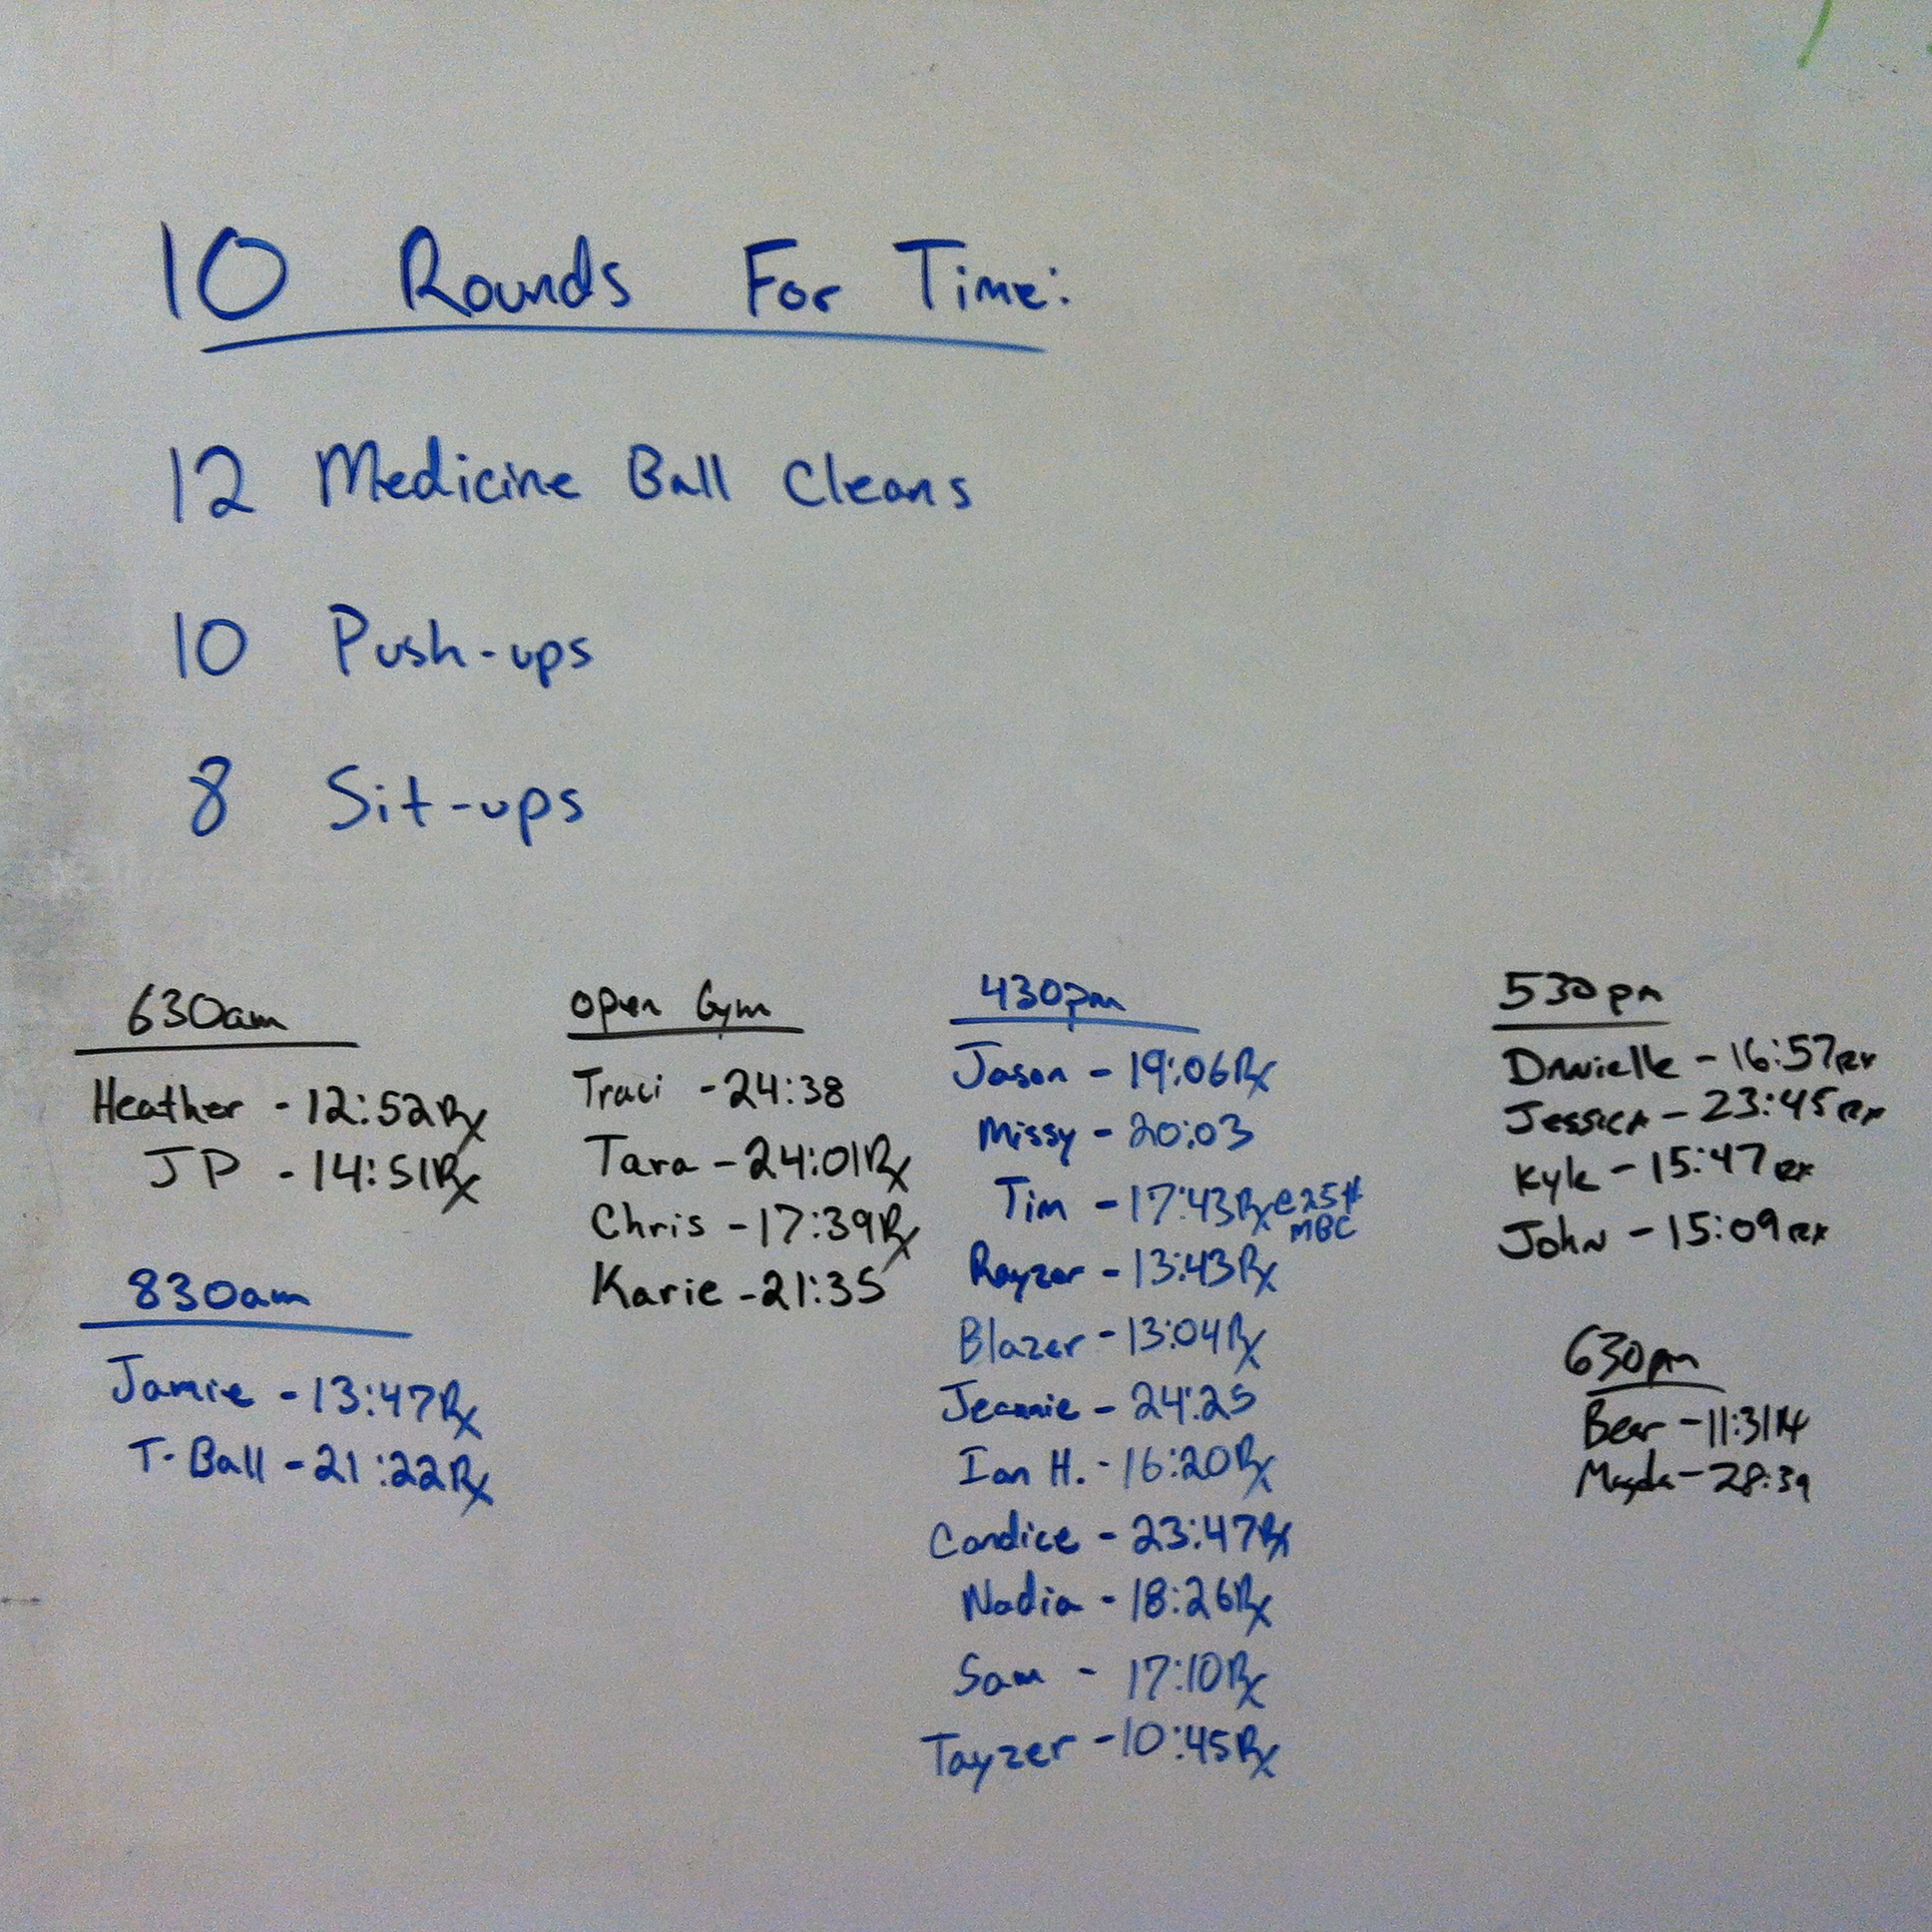 10 Rounds For Time:
12 Medicine Ball Cleans
10 Push-ups
8 Sit-ups
630am
Heather - 12:52Rx
JP - 14:51Rx
830am
Jamie - 13:47Rx
T-Ball - 21:22Rx
open Gym
Traci - 24:38
Tara - 24:01Rx
Chris - 17:39Rx
Karie - 21:35
430pm
Jason - 19:06Rx
Missy - 20:03
Tim - 17:43Rx @ 25#
MBC
Rayzer - 13:43Rx
Blazer - 13:04Rx
Jeannie - 24:25
Ian H. - 16:20Rx
Candice - 23:47Rx
Nadia - 18:26Rx
Sam - 17:10Rx
Tayzer - 10:45Rx
530pm
Danielle - 16:57Rx
Jessica - 23:45Rx
Kyle - 15:47Rx
John - 15:09Rx
630pm
Bear - 11:31Rx
Magda - 28:39